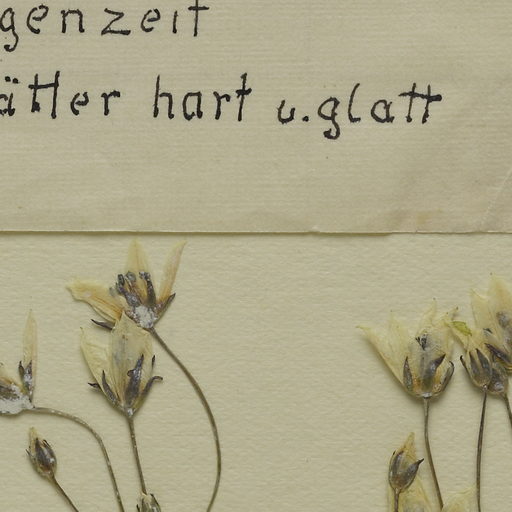 genzeit
ätter hart u. glatt